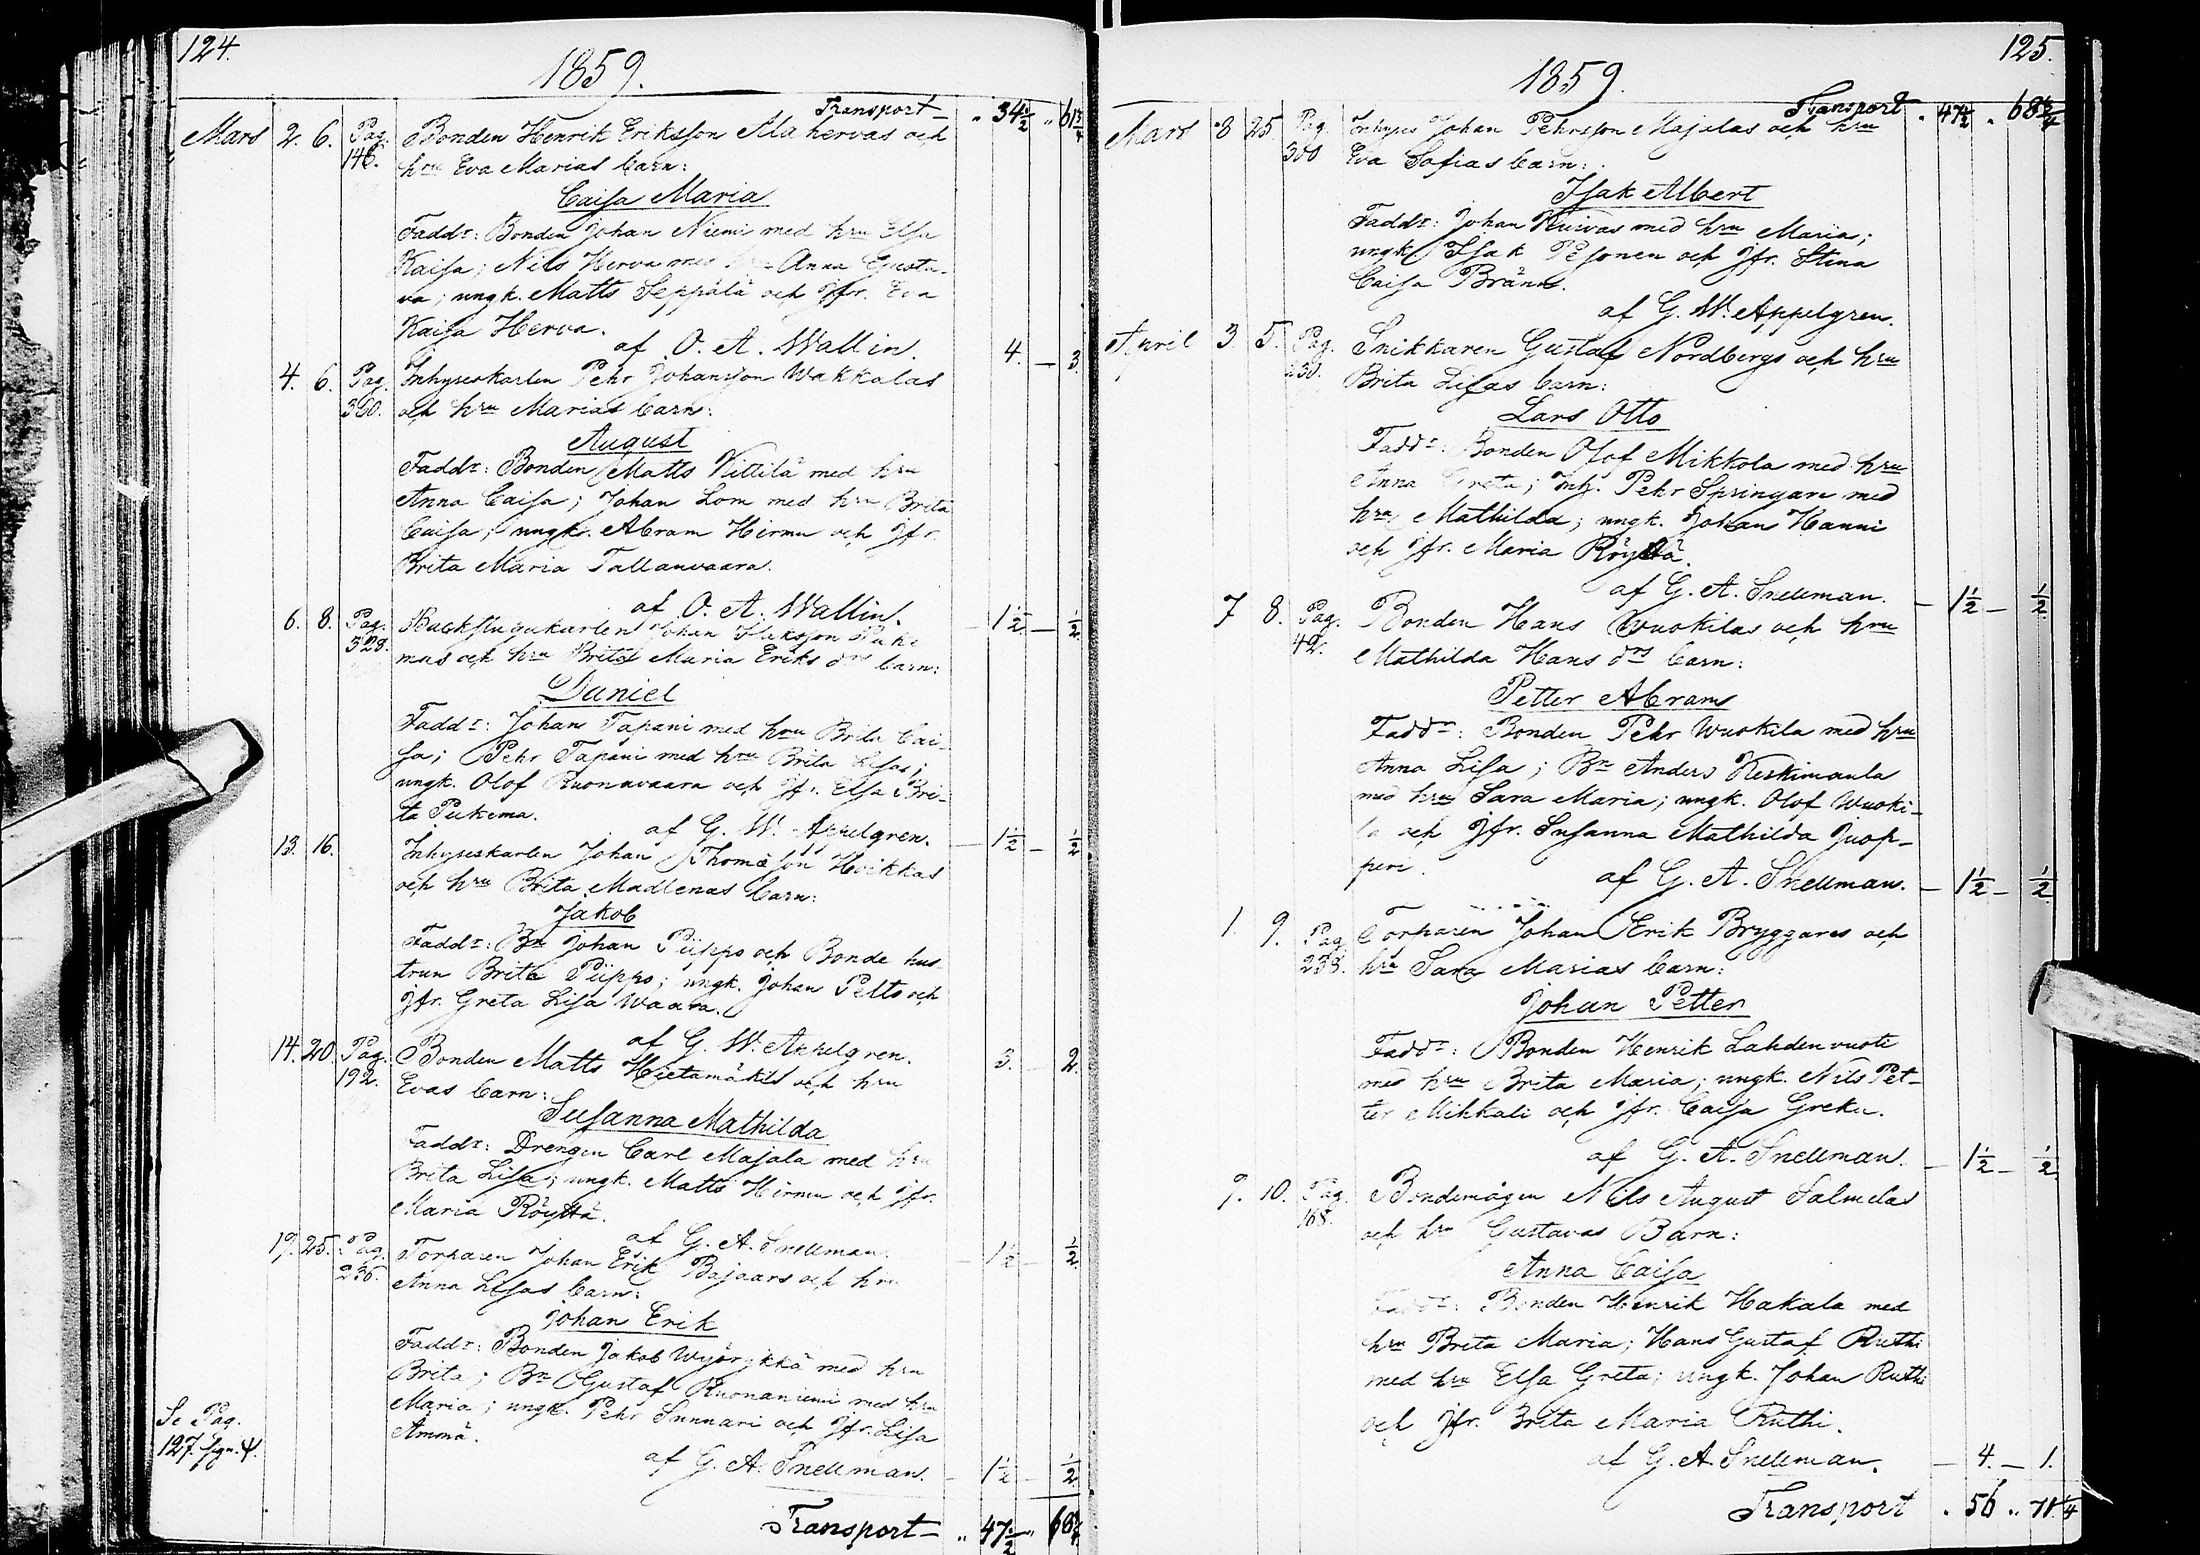 124.
1859.
Transport " 34 1/2 " 61 3/4
Mars 2. 6. Pag. Bonden Henrik Eriksson Ala hervas och
146. hru Eva Marias barn:
Caisa Maria
Faddr: Bonden Johan Niemi med hru Elsa
Kaisa; Nils Herva med hru Anna Gusta-
va; ungk. Matts Seppälä och Jfr. Eva
Kaisa Herva.
af O. A. Wallin. 4. — 3.
4. 6. Pag. Inhyseskarlen Pehr Johansson Wakkalas
360. och hru Marias barn:
August
Faddr: Bonden Matts Kittilä med hru
Anna Caisa; Johan Lom med hru Brita
Caisa; ungk. Abram Hirmu och Jfr.
Brita Maria Tallanvaara.
af O. A. Wallin. — 1 1/2 — 1/2
6. 8. Pag. Backstugukarlen Johan Isaksson
329. mas och hru Brita Maria Eriks drs barn:
Daniel
Faddr: Johan Tapani med hru Brita Cai-
sa; Pehr Tapani med hru Brita Lisa;
ungk. Olof Ruonavaara och Jfr. Elsa Bri-
ta Pukema.
af G. W. Appelgren. — 1 1/2 — 1/2
13. 16. Inhyseskarlen Johan Thomasson Hoikkas
och hru Brita Madlenas barn:
Jakob
Faddr: Bn Johan Piippo och Bonde hus-
trun Brita Piippo; ungk. Johan Pelto och
Jfr. Greta Lisa Waara.
af G. W. Appelgren. 3. 2.
14. 20. Pag. Bonden Matts Hietamäkis och hru
192. Evas barn:
Susanna Mathilda
Faddr: Drengen Carl Majala med hru
Brita Lisa; ungk. Matts Hirmu och Jfr.
Maria Röyttä.
af G. A. Snellman. — 1 1/2 — 1/2
19. 25. Pag. Torparen Johan Erik Bajaars och hru
236. Anna Lisas barn:
Johan Erik
Faddr: Bonden Jakob Wyörykkä med hru
Brita; Bn Gustaf Ruonaniemi med hru
Maria; ungk. Pehr Sunnari och Jfr. Lisa
Ämmä.
af G. A. Snellman. — 1 1/2 — 1/2
Se Pag.
127.
Transport — " 47 1/2 "
125.
1859.
Transport " 47 1/2 " 68 3/4
Mars 8 25 Pag. Inhyses Johan Pehrsson Majalas och hru
300 Eva Sofias barn:
Isak Albert
Faddr: Johan Kuivas med hru Maria;
ungk. Isak Pesonen och Jfr. Stina
Caisa Bränn.
af G. W. Appelgren.
April 3. 5. Pag. Snikkaren Gustaf Nordbergs och hru
Brita Lisas barn:
Lars Otto
Faddr: Bonden Olof Mikkola med hru
Anna Greta; Inh. Pehr Springare med
hru Mathilda; ungk. Johan Hanni
och Jfr. Maria Röyttä.
af G. A. Snellman. — 1 1/2 — 1/2
7 8. Pag. Bonden Hans Wuokilas och hru
42. Mathilda Hans drs barn:
Petter Abram
Faddr: Bonden Pehr Wuokila med hru
Anna Lisa; Bn Anders Keskimaula
med hru Sara Maria; ungk. Olof Wuoki-
la och Jfr. Susanna Mathilda Juop-
peri.
af G. A. Snellman. — 1 1/2 — 1/2
1. 9. Pag. Torparen Johan Erik Bryggares och
238. hru Sara Marias barn:
Johan Petter
Faddr: Bonden Henrik Lahdenvuote
med hru Brita Maria; ungk. Nils Pet-
ter Mikkali och Jfr. Caisa Greku.
af G. A. Snellman. — 1 1/2 — 1/2
9. 10. Pag. Bondemågen Nils August Salmelas
168. och hru Gustavas Barn:
Anna Caisa
Faddr: Bonden Henrik Hakala med
hru Brita Maria; Hans Gustaf Ruthi
med hru Elsa Greta; ungk. Johan Ruthi
och Jfr. Brita Maria Ruthi.
af G. A. Snellman. — 4. — 1.
Transport " 56 " 71 1/4